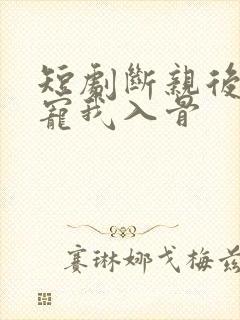 短劇斷親後
寵我入骨
賽琳娜戈梅茲